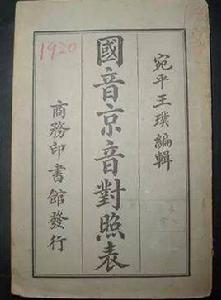 1920
宛平王璞編輯
國音京音對照表
商務印書館發行